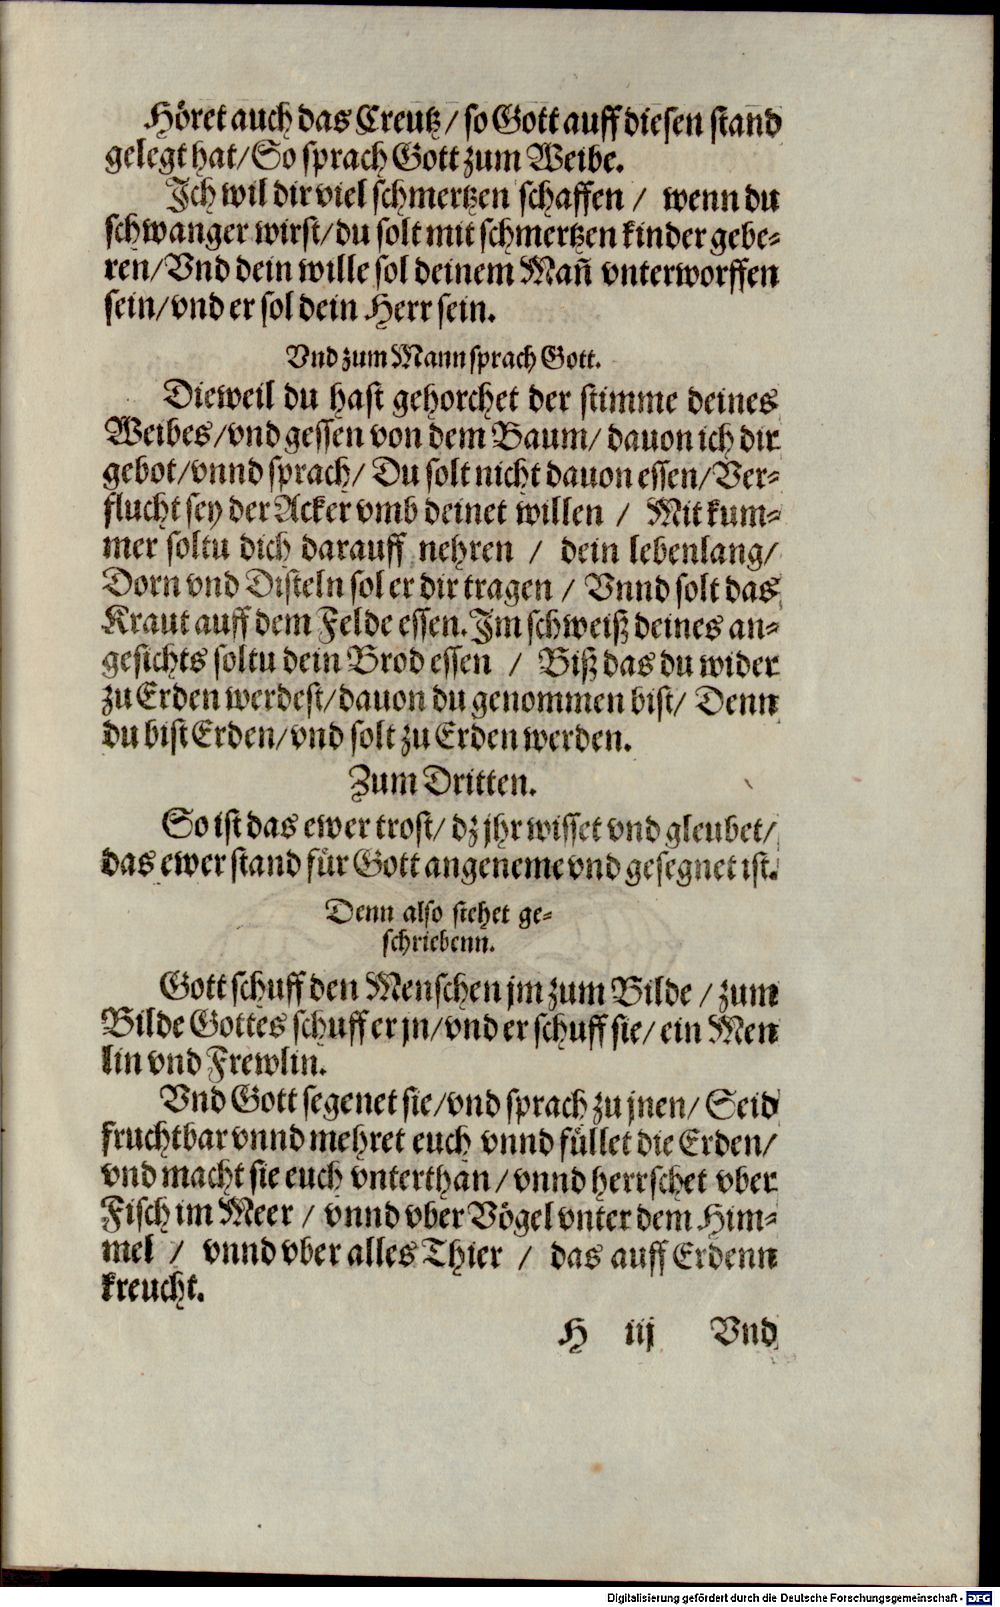 Höret auch das Creutz / so Gott auff diesen stand
gelegt hat / So sprach Gott zum Weibe.
Ich wil dir viel schmertzen schaffen / wenn du
schwanger wirst / du solt mit schmertzen kinder gebe-
ren / Vnd dein wille sol deinem Mañ vnterworffen
sein / vnd er sol dein Herr sein.
Vnd zum Mann sprach Gott.
Dieweil du hast gehorchet der stimme deines
Weibes / vnd gessen von dem Baum / dauon ich dir
gebot / vnnd sprach / Du solt nicht dauon essen / Ver-
flucht sey der Acker vmb deinet willen / Mit kum-
mer soltu dich darauff nehren / dein lebenlang /
Dorn vnd Disteln sol er dir tragen / Vnnd solt das
Kraut auff dem Felde essen. Im schweiß deines an-
gesichts soltu dein Brod essen / Biß das du wider
zu Erden werdest / dauon du genommen bist / Denn
du bist Erden / vnd solt zu Erden werden.
Zum Dritten.
So ist das ewer trost / dz jhr wisset vnd gleubet /
das ewer stand für Gott angeneme vnd gesegnet ist.
Denn also stehet ge-
schriebenn.
Gott schuff den Menschen jm zum Bilde / zum
Bilde Gottes schuff er jn / vnd er schuff sie / ein Men
lin vnd Frewlin.
Vnd Gott segenet sie / vnd sprach zu jnen / Seid
fruchtbar vnnd mehret euch vnnd füllet die Erden /
vnd macht sie euch vnterthan / vnnd herrschet vber
Fisch im Meer / vnnd vber Vögel vnter dem Him-
mel / vnnd vber alles Thier / das auff Erdenn
kreucht.
H iij Vnd
Digitalisierung gefördert durch die Deutsche Forschungsgemeinschaft - DFG